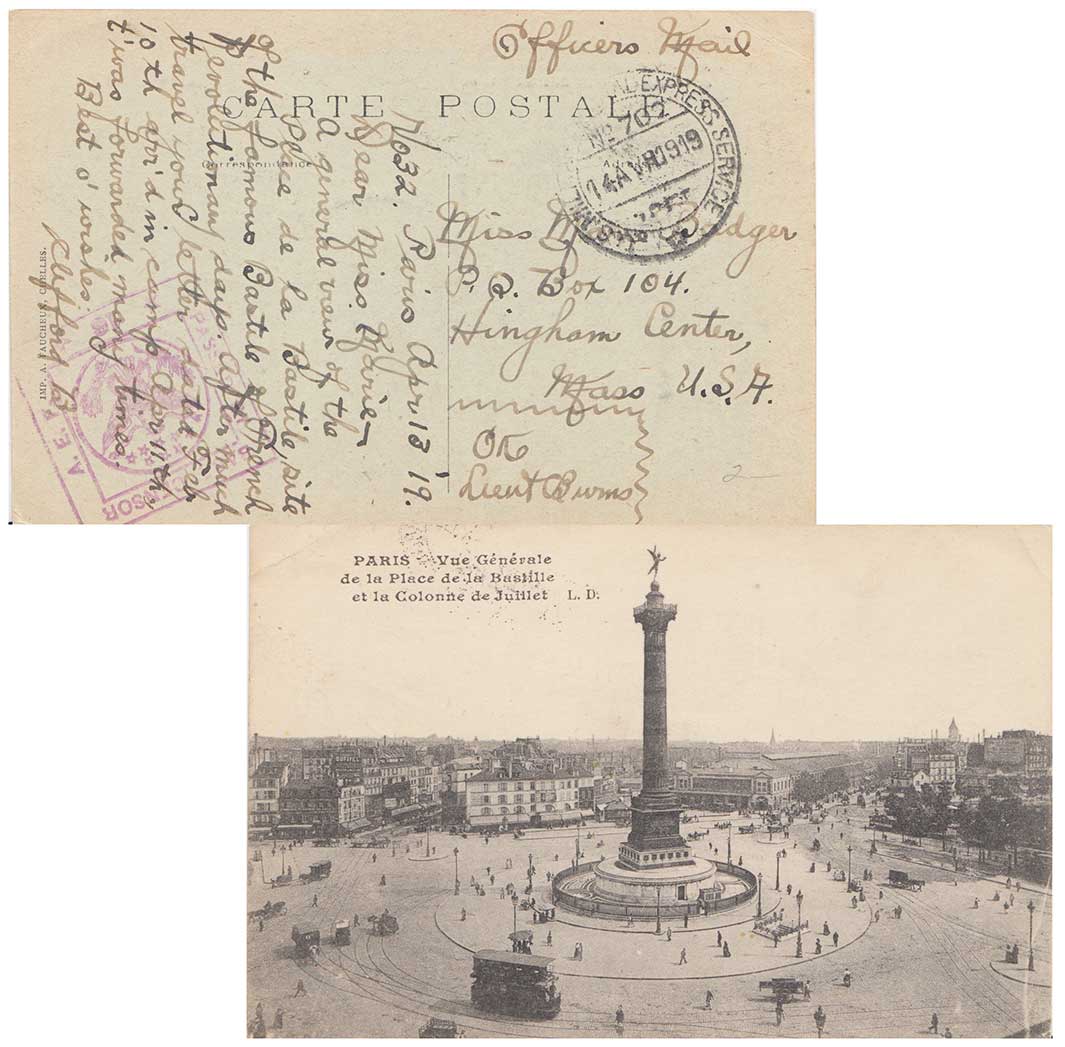 Officers Mail
CARTE POSTALE
Correspondance
EXPRESS SERVICE
No 702
14 AVR 1919
Miss
P.O. Box 104.
Hingham Center,
Mass U.S.A.
OK
Lieut Burns
2
1/032. Paris Apr 13 '19.
Dear Miss Marie-
A general view of the
Place de la Bastile, site
of the famous Bastile of French
revolutionary days. After much
travel your letter dated Feb
10th arr'd in camp Apr 11th,
t'was forwarded many times.
Best o' wishes.
Clifford B
IMP. A. FAUCHEUX, CHELLES.
A.E.F.
PASSED
CENSOR
PARIS - Vue Générale
de la Place de la Bastille
et la Colonne de Juillet L. D.